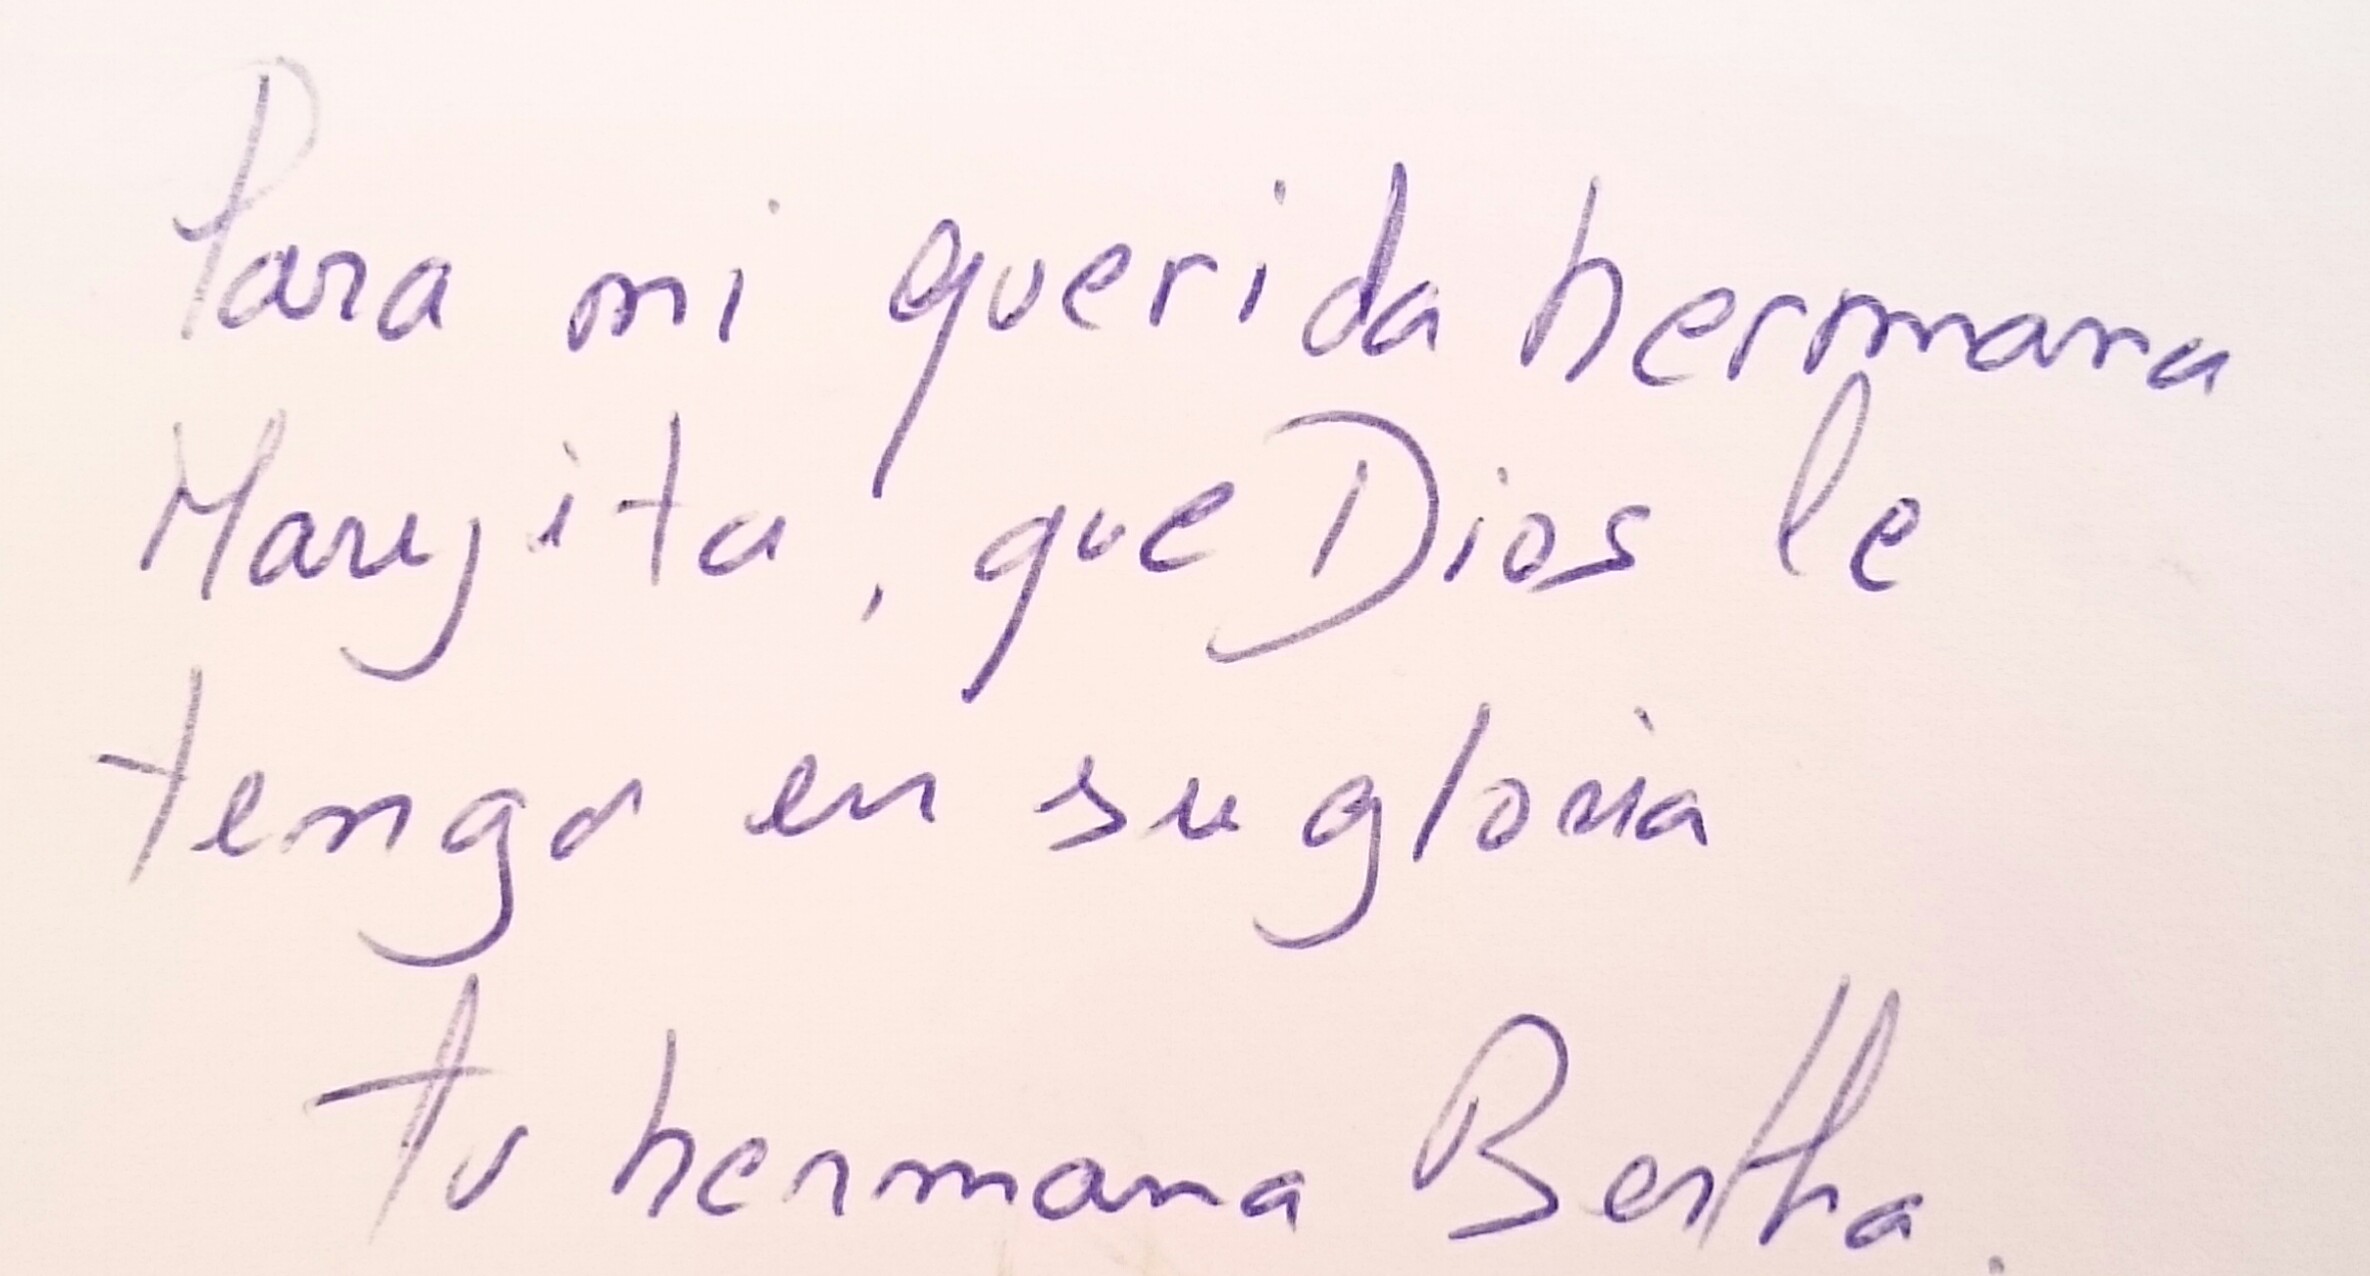 Para mi querida hermana
Marujita, que Dios le
tenga en su gloria
tu hermana Bertha.